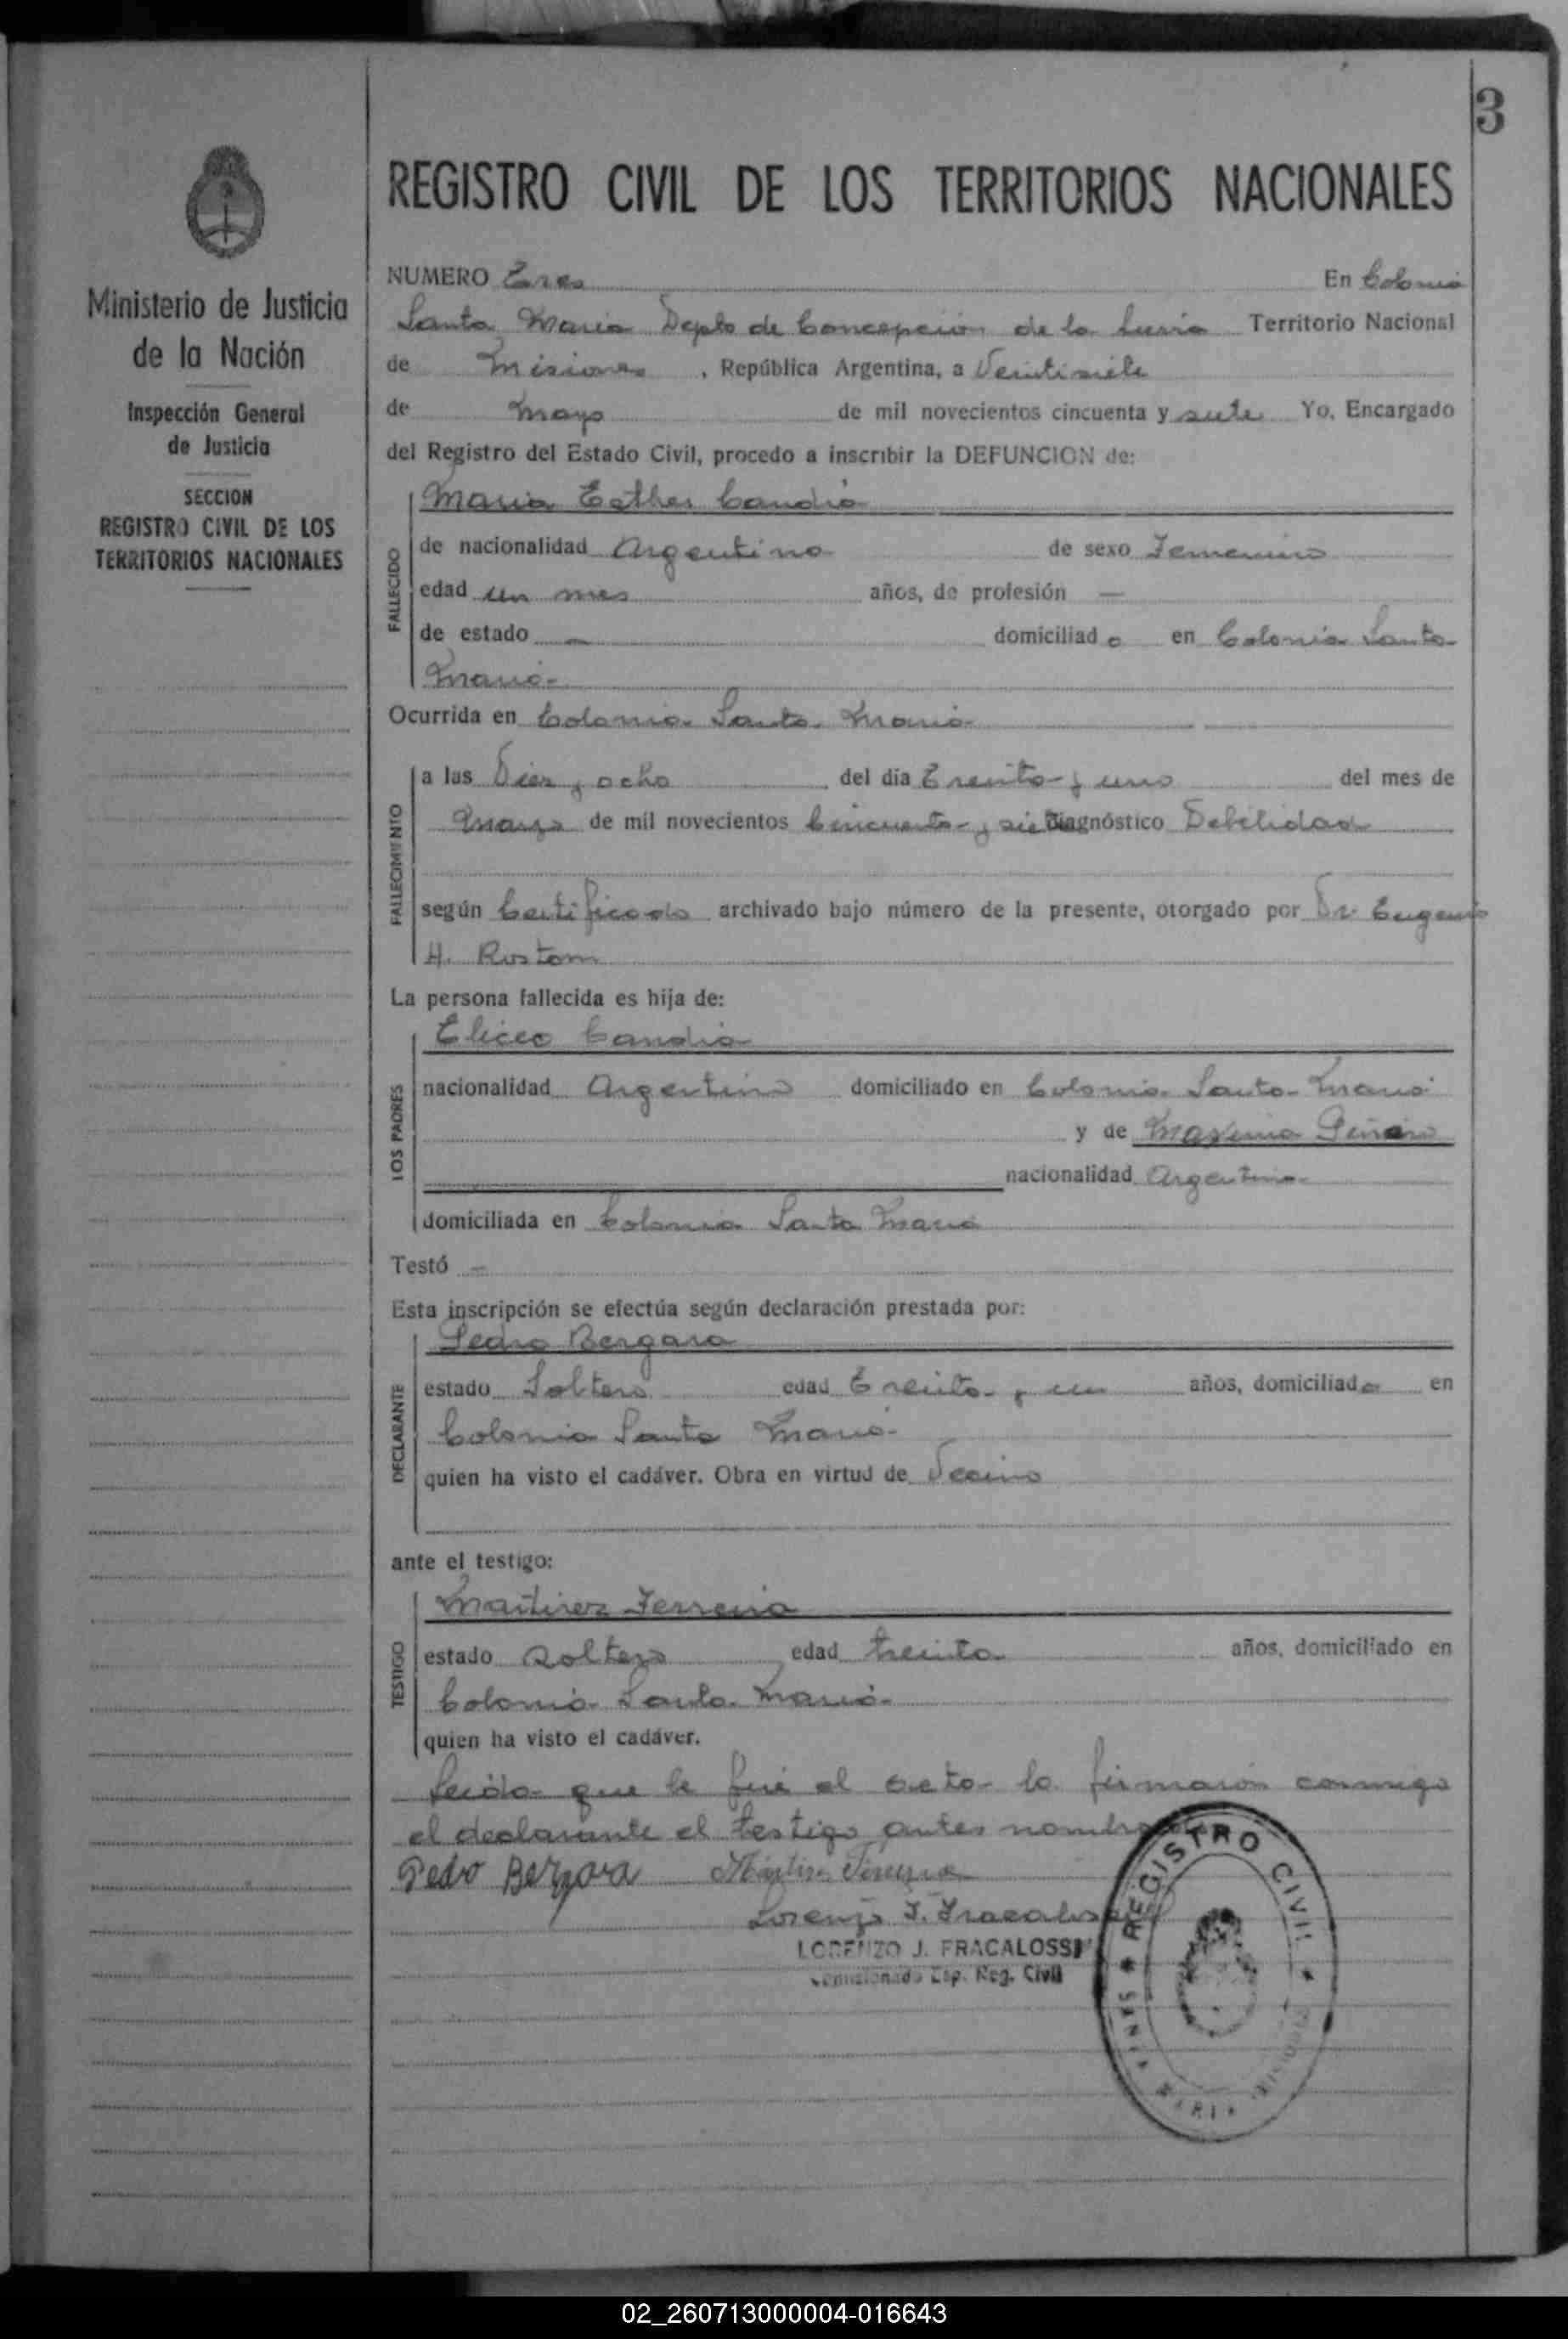 3
REGISTRO CIVIL DE LOS TERRITORIOS NACIONALES
Ministerio de Justicia
de la Nación
Inspección General
de Justicia
SECCION
REGISTRO CIVIL DE LOS
TERRITORIOS NACIONALES
NUMERO Tres En Colonia
Santa Maria Depto de Concepcion de la Sierra Territorio Nacional
de Misiones, República Argentina, a Veintisiete
de Mayo de mil novecientos cincuenta y siete Yo, Encargado
del Registro del Estado Civil, procedo a inscribir la DEFUNCION de:
Maria Esther Candia
FALLECIDO
de nacionalidad Argentina de sexo Femenino
edad un mes años, de profesión —
de estado — domiciliada en Colonia Santa
Maria-
Ocurrida en Colonia Santa Maria-
FALLECIMIENTO
a las Diez y ocho del día Treinta y uno del mes de
de mil novecientos Cincuenta y siete diagnóstico Debilidad
según Certificado archivado bajo número de la presente, otorgado por Dr. Eugenio
H. Rostom
La persona fallecida es hija de:
LOS PADRES
Eliceo Candia
nacionalidad Argentino domiciliado en Colonia Santa Maria
y de Maxima
nacionalidad Argentina-
domiciliada en Colonia Santa Maria
Testó —
Esta inscripción se efectúa según declaración prestada por:
DECLARANTE
Pedro Bergara
estado Soltero edad Treinta y un años, domiciliado en
Colonia Santa Maria-
quien ha visto el cadáver. Obra en virtud de Vecino
ante el testigo:
TESTIGO
Martirez Ferreira
estado Soltero edad treinta años, domiciliado en
Colonia Santa Maria-
quien ha visto el cadáver.
Leida que le fué el acta la firmaron conmigo
el declarante el testigo antes nombrados
Pedro Bergara
Lorenzo J. Fracalossi
LORENZO J. FRACALOSSI
Comisionado Esp. Reg. Civil
REGISTRO CIVIL
SANTA MARIA MISIONES
02_260713000004-016643